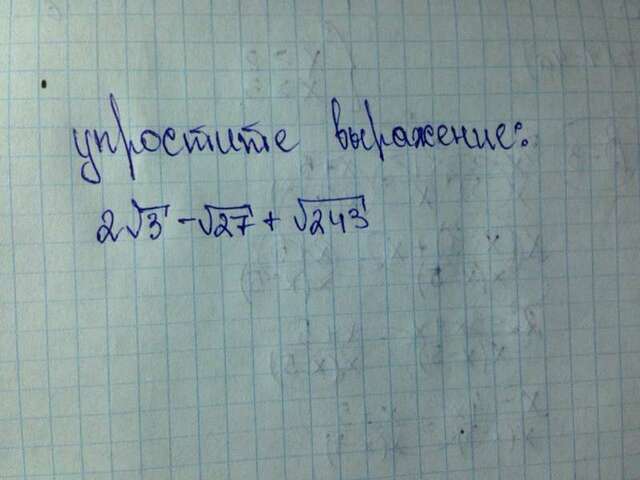 упростите выражение:
2√3 - √27 + √243